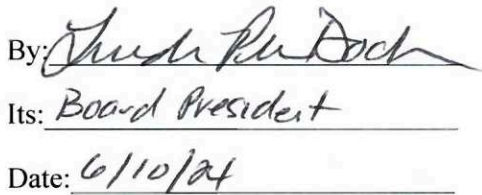 By:
Its: Board President
Date: 6/10/24